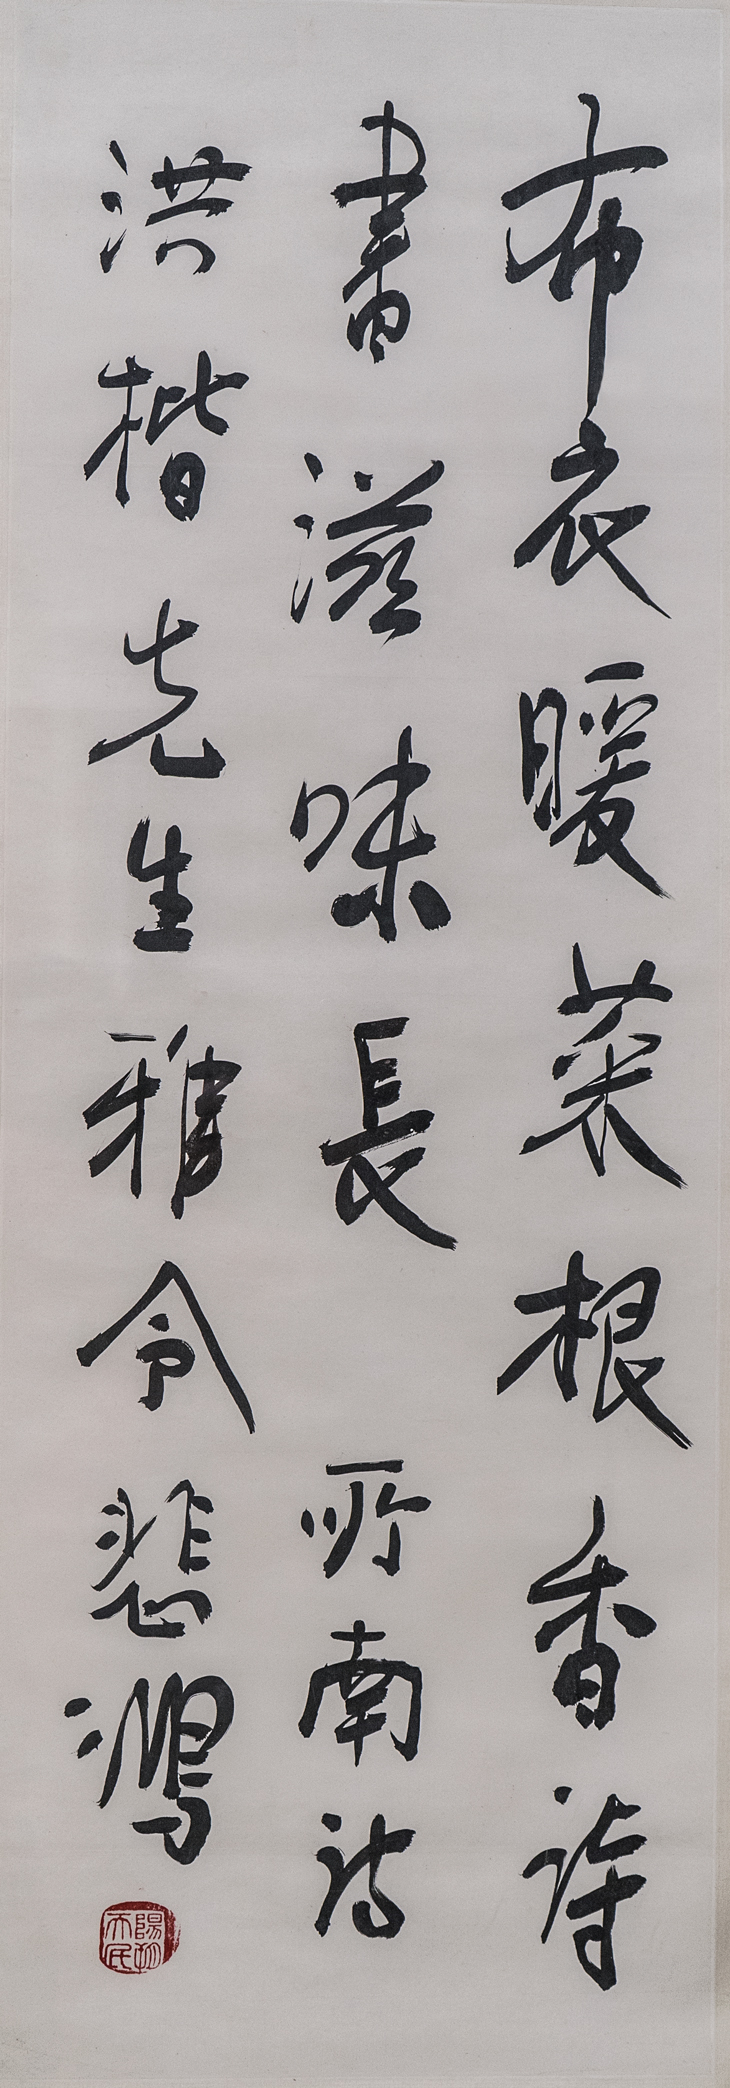 布衣暖菜根香詩
書滋味長 所南詩
洪楷先生雅令 悲鴻
陽朔天民